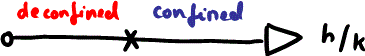 deconfined confined
h/k